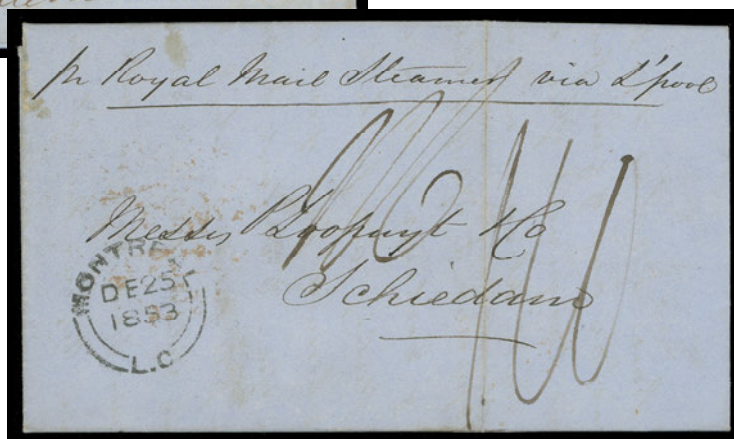 pr Royal Mail Steamer via L'pool
Messrs Loopuyt & Co
Schiedam
MONTRE
DE 25
1853
L.C